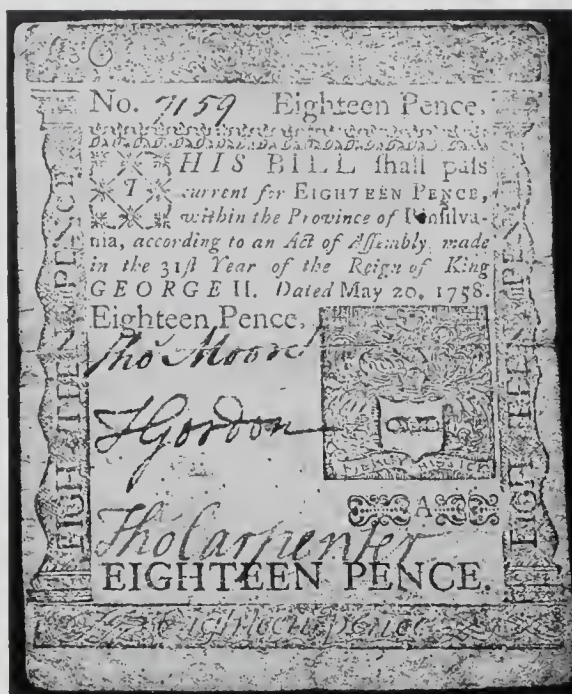 No. 7159 Eighteen Pence.
THIS BILL ſhall paſs
current for EIGHTEEN PENCE,
within the Province of Penſilva-
nia, according to an Act of Aſſembly, made
in the 31ſt Year of the Reign of King
GEORGE II. Dated May 20, 1758.
Eighteen Pence.
Tho Moore
J Gordon
A
Tho Carpenter
EIGHTEEN PENCE.
Eighteen pence
EIGHTEEN PENCE
EIGHTEEN PENCE